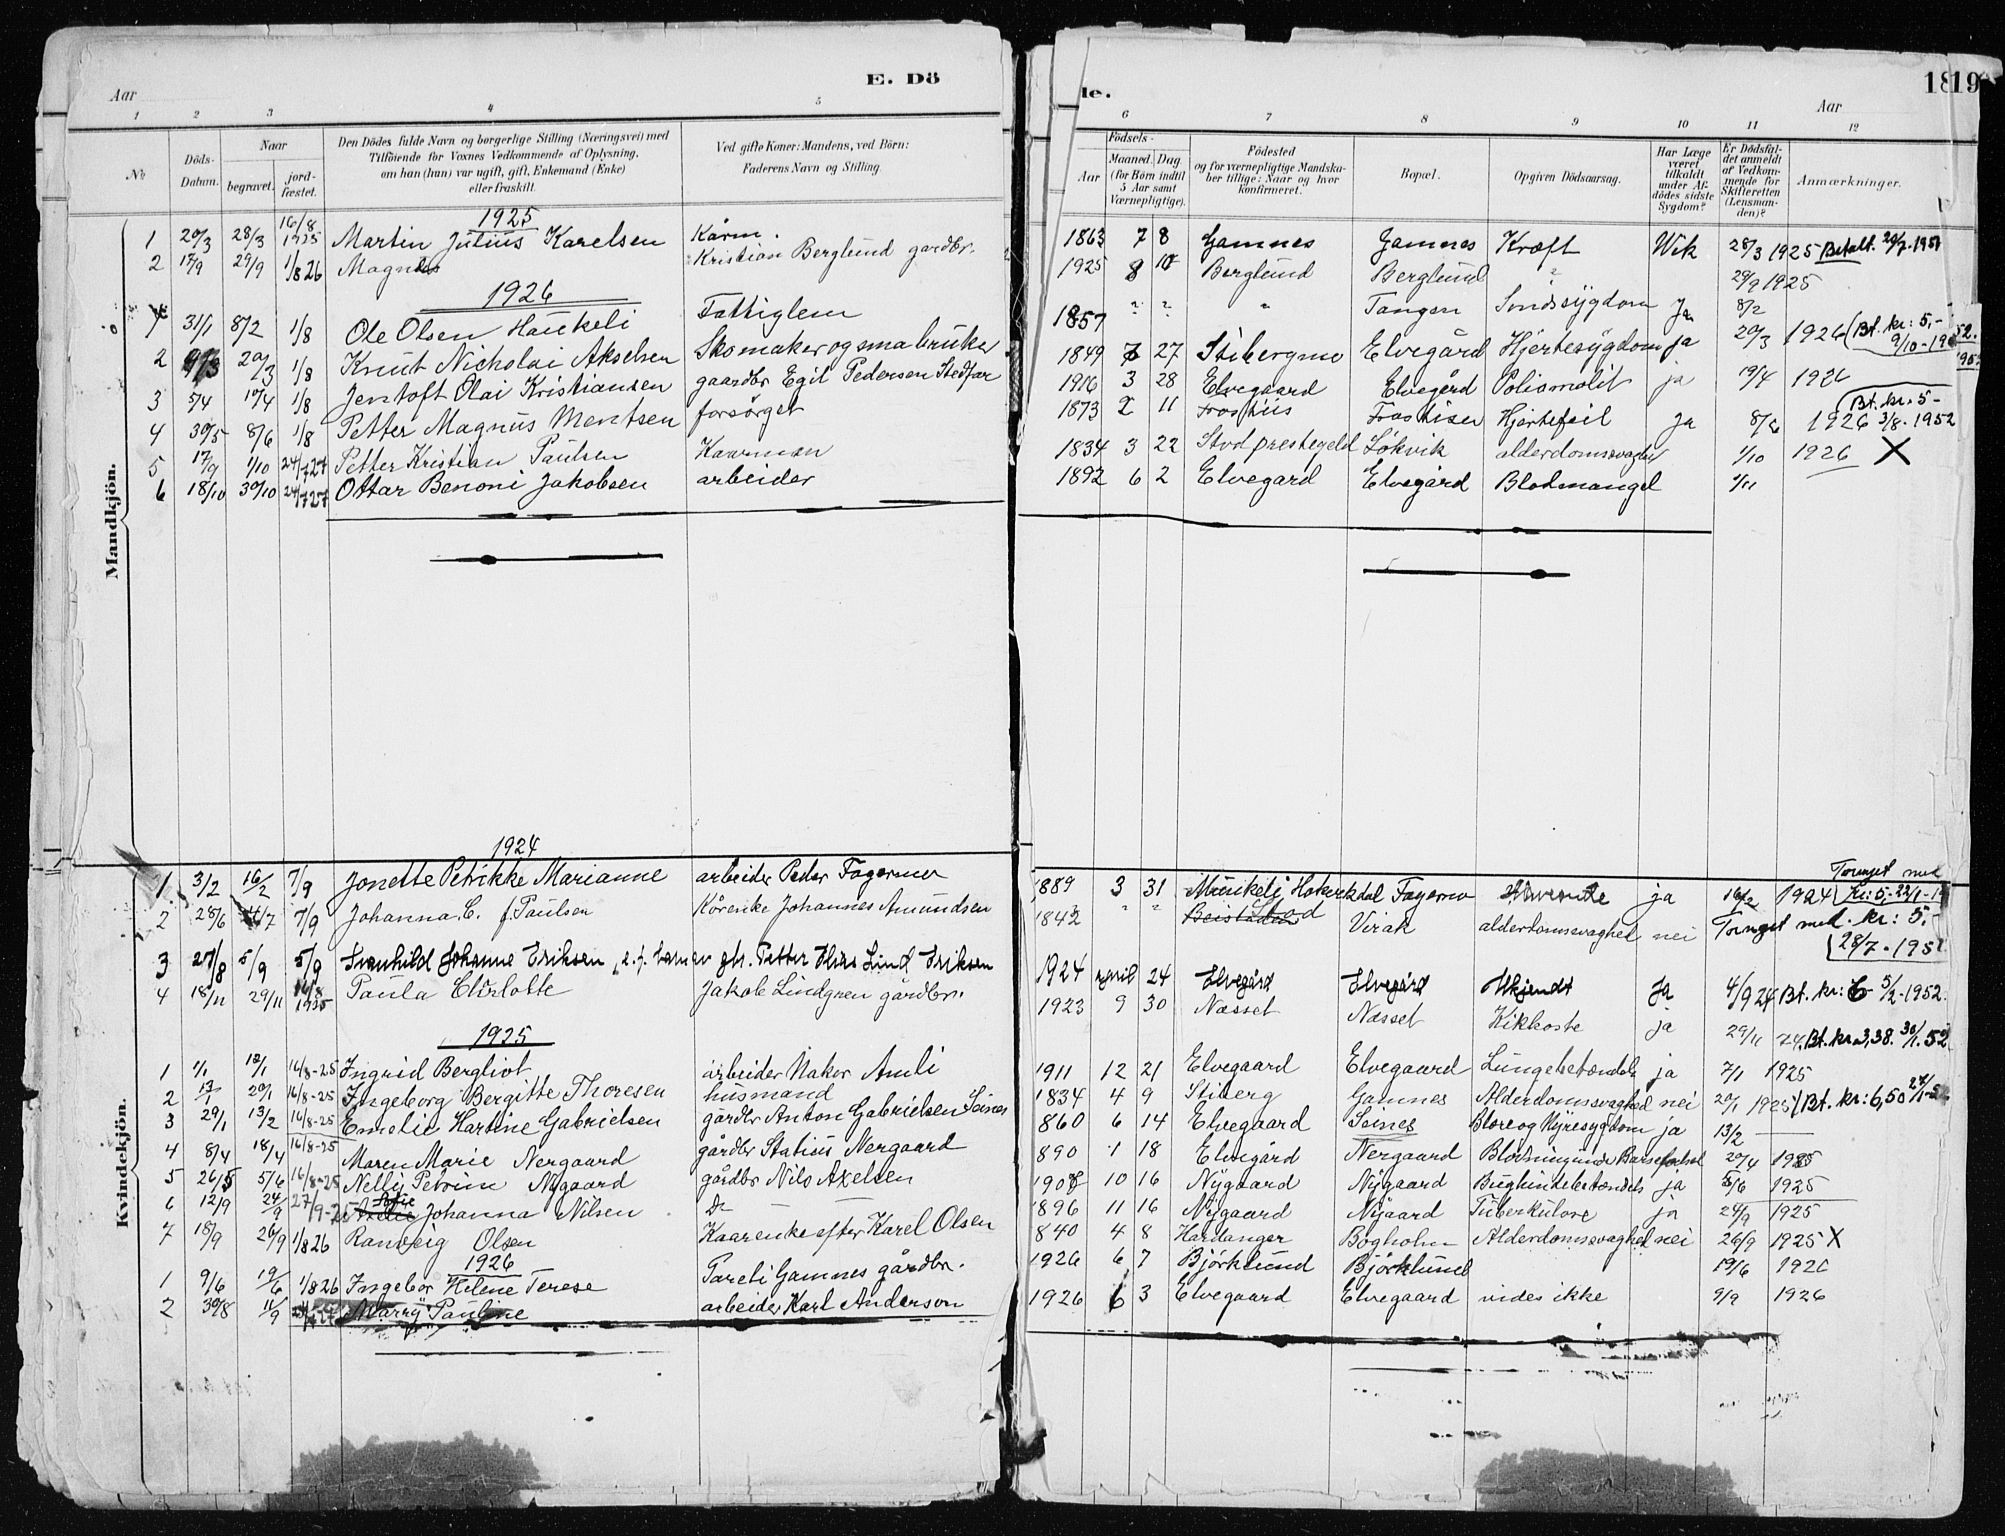 E. Dö
de.
1819
Aar
Aar
1 2 3 4 5
6 7 8 9 10 11 12
№
Döds-Datum.
Naar
begravet.
jord-fæstet.
Den Dödes fulde Navn og borgerlige Stilling (Næringsvei) med Tilföiende for Voxnes Vedkommende af Oplysning, om han (hun) var ugift, gift, Enkemand (Enke) eller fraskilt.
Ved gifte Koner: Mandens, ved Börn: Faderens Navn og Stilling.
Födsels-
Aar
Maaned. Dag (for Börn indtil 5 Aar samt Værnepligtige).
Födested og for værnepligtige Mandskaber tillige: Naar og hvor konfirmeret.
Bopæl.
Opgiven Dödsaarsag.
Har Læge været tilkaldt under Afdödes sidste Sygdom?
Er Dödsfaldet anmeldt af Vedkommende for Skifteretten (Lensmanden)?
Anmærkninger.
Mandkjön.
1925
1 20/3 28/3 16/8 1925 Martin Julius Karelsen Kårm. 1863 7 8 Gamnes Gamnes Kræft Wik 28/3 1925 Betalt 20/7-1951
2 17/9 29/9 1/8 26 Magnus Kristian Berglund gardbr. 1925 8 10 Berglund Berglund " 29/9 1925
1926
1 31/1 8/2 1/8 Ole Olsen Haukeli Fattiglem 1857 " " " Tangen Sindssygdom Ja 8/2
2 20/3 1/8 Knut Nicholai Akselsen Skomaker og smabruker 1849 7 27 Stibergmo Elvegård Hjertesygdom Ja 20/3 1926 (Bt. kr: 5,- 9/10-1952.
3 5/4 10/4 1/8 Jentoft Olai Kristiansen gaardbr Egil Pedersen Stedfar 1916 3 28 Elvegaard Elvegård Poliomelit ja 19/4 1926
4 30/5 8/6 1/8 Petter Magnus Mentsen forsörget 1873 2 11 Frostiis Frostisen Hjertefeil Ja 8/6 1926 Bt. kr. 5- 3/8-1952
5 17/9 1/10 24/7 27 Petter Kristian Paulsen Kaarman 1834 3 22 Stod prestegeld Sökvik alderdomssvaghet 1/10 1926 X
6 18/10 30/10 24/7 27 Ottar Benoni Jakobsen arbeider 1892 6 2 Elvegard Elvegård Blodmangel 1/11
Kvindekjön.
1924
1 3/2 16/2 7/9 Jonette Petrikke Marianne arbeider Peder Fagermo 1889 3 31 Fagermo ja 16/2 1924 Torvget med Kr: 5,- 22/1-19
2 28/6 7/9 Johanna C. f. Paulsen Kårenke Johannes Amundsen 1842 " " Stod Virak alderdomssvaghet nei Torvget med. kr: 5,- 28/7-1951
3 27/8 5/9 5/9 Svanhild Johanne Eriksen Petter Elias Lind Eriksen 1924 april 24 Elvegård Elvegård Ukjendt Ja 4/9 24 Bt. kr: 6- 5/2-1952.
4 18/11 29/11 16/8 1925 Paula Charlotte Jakob Lindgren gårdbr. 1923 9 30 Næsset Næsset Kikhoste ja 29/11 24. Bt. kr. 3,38. 30/1.52
1925
1 1/1 12/1 16/8-25 Ingrid Bergliot arbeider Hakor Amli 1911 12 21 Elvegaard Elvegaard Lungebetændels ja 7/1 1925
2 13/1 20/1 16/8-25 Ingeborg Bergitte Thoresen husmand 1834 4 9 Stiberg Gamnes Alderdomssvaghed nei 20/1 1925 (Bt. kr: 6,50
3 29/1 13/2 16/8-25 Emelie Hartine Gabrielsen gårdbr Anton Gabrielsen Seines 860 6 14 Elvegaard Seines Blære og Nyresygdom ja 13/2
4 8/4 18/4 16/8-25 Maren Marie Nergaard gårdbr Statius Nergaard 890 1 18 Elvegård Nergaard 20/4 1925
5 26/5 5/6 16/8-25 Nelly Petrine Nygaard gårdbr Nils Axelsen 1908 10 16 Nygaard Nygaard Bughindebetændels ja 5/6 1925
6 12/9 24/9 27/9-25 Johanna Nilsen Do 1896 11 16 Nygaard Nygaard Tuberkulose ja 24/9 1925
7 18/9 26/9 1/8 26 Ranveig Olsen Kaarenke efter Karel Olsen 840 4 8 Hardanger Bogholm Alderdomssvaghet nei 26/9 1925 X
1926
1 9/6 19/6 1/8 26 Ingebor Helene Terese Gamnes gårdbr. 1926 6 7 Björklund Björklund 19/6 1926
2 30/8 11/9 Marry Pauline arbeider Karl Anderson 1926 6 3 Elvegaard Elvegaard vides ikke 9/9 1926